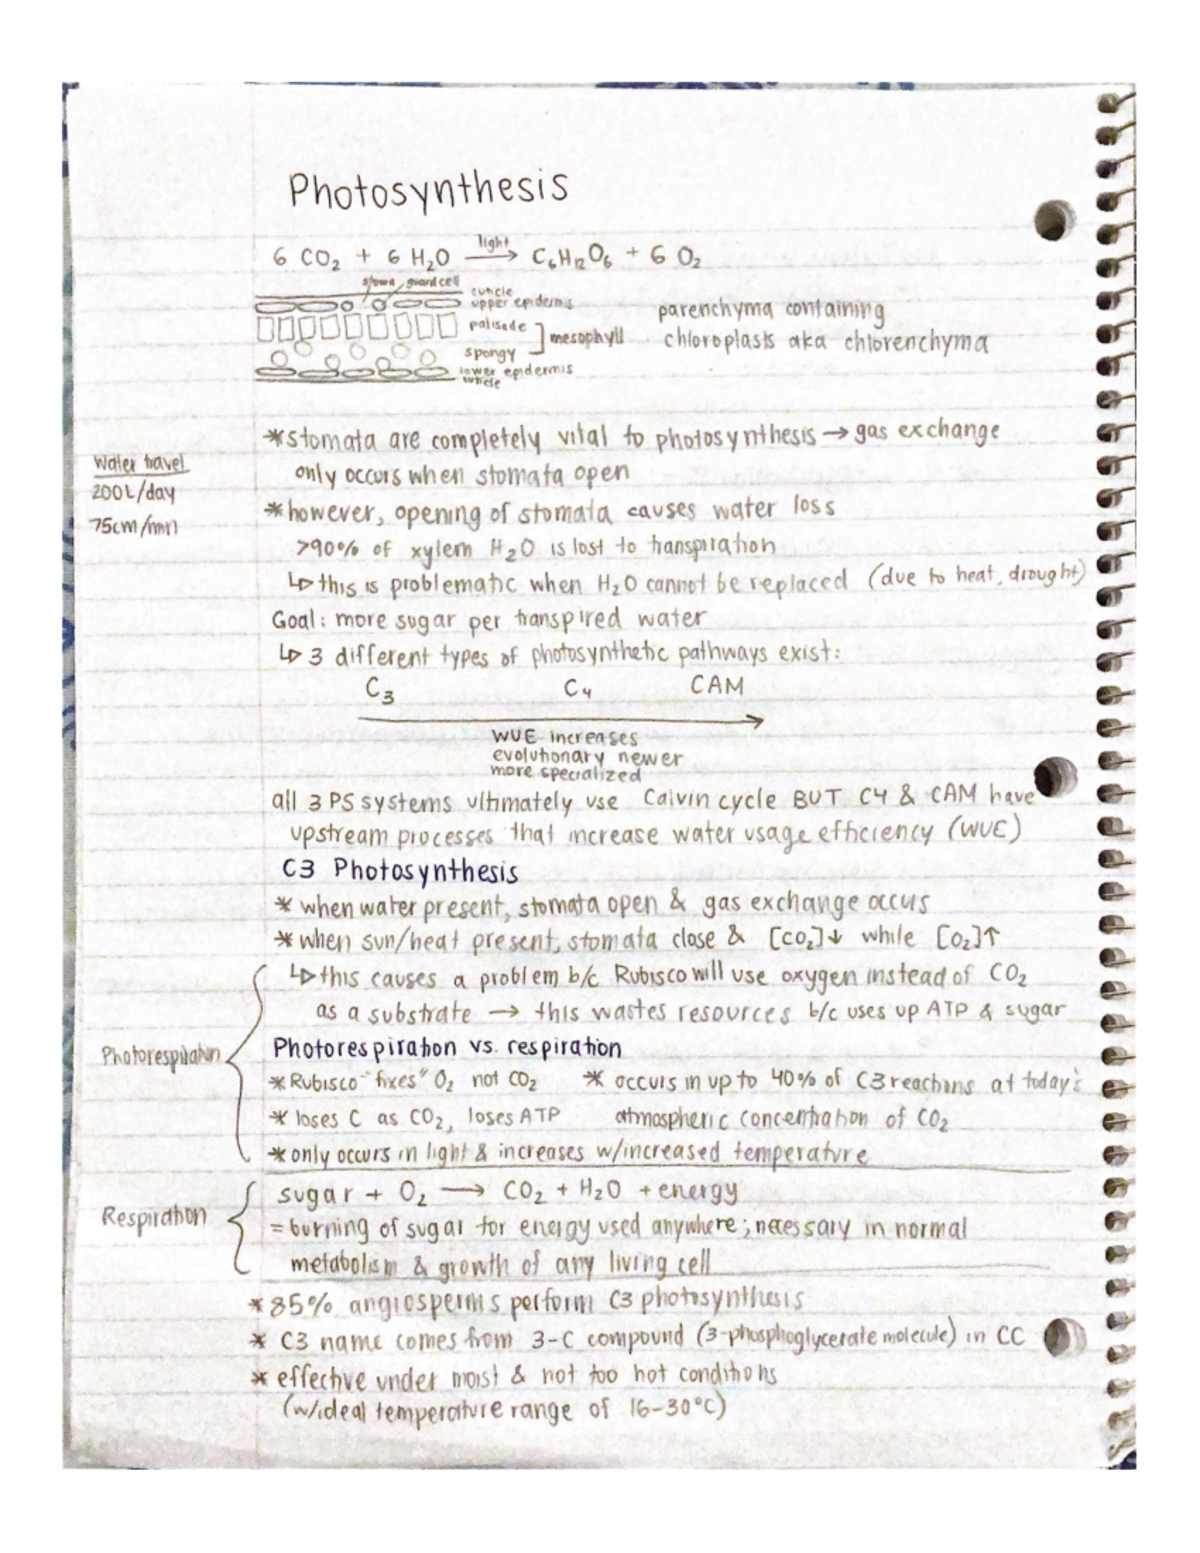 Photosynthesis
6 CO₂ + 6 H₂O —light→ C₆H₁₂O₆ + 6 O₂
stoma, guard cell
cuticle
upper epidermis
palisade
] mesophyll
spongy
lower epidermis
cuticle
parenchyma containing
chloroplasts aka chlorenchyma
*stomata are completely vital to photosynthesis → gas exchange
only occurs when stomata open
Water travel
200L/day
75cm/min
*however, opening of stomata causes water loss
>90% of xylem H₂O is lost to transpiration
↳ this is problematic when H₂O cannot be replaced (due to heat, drought)
Goal: more sugar per transpired water
↳ 3 different types of photosynthetic pathways exist:
C₃ C₄ CAM
WUE increases
evolutionary newer
more specialized
all 3 PS systems ultimately use Calvin cycle BUT C4 & CAM have
upstream processes that increase water usage efficiency (WUE)
C3 Photosynthesis
* when water present, stomata open & gas exchange occurs
* when sun/heat present, stomata close & [CO₂]↓ while [O₂]↑
↳ this causes a problem b/c Rubisco will use oxygen instead of CO₂
as a substrate → this wastes resources b/c uses up ATP & sugar
Photorespiration
Photorespiration vs. respiration
*Rubisco "fixes" O₂ not CO₂ * occurs in up to 40% of C3 reactions at today's
* loses C as CO₂, loses ATP atmospheric concentration of CO₂
*only occurs in light & increases w/increased temperature
Respiration
sugar + O₂ → CO₂ + H₂O + energy
= burning of sugar for energy used anywhere; necessary in normal
metabolism & growth of any living cell
* 85% angiosperms perform C3 photosynthesis
* C3 name comes from 3-C compound (3-phosphoglycerate molecule) in CC
* effective under moist & not too hot conditions
(w/ideal temperature range of 16-30°C)